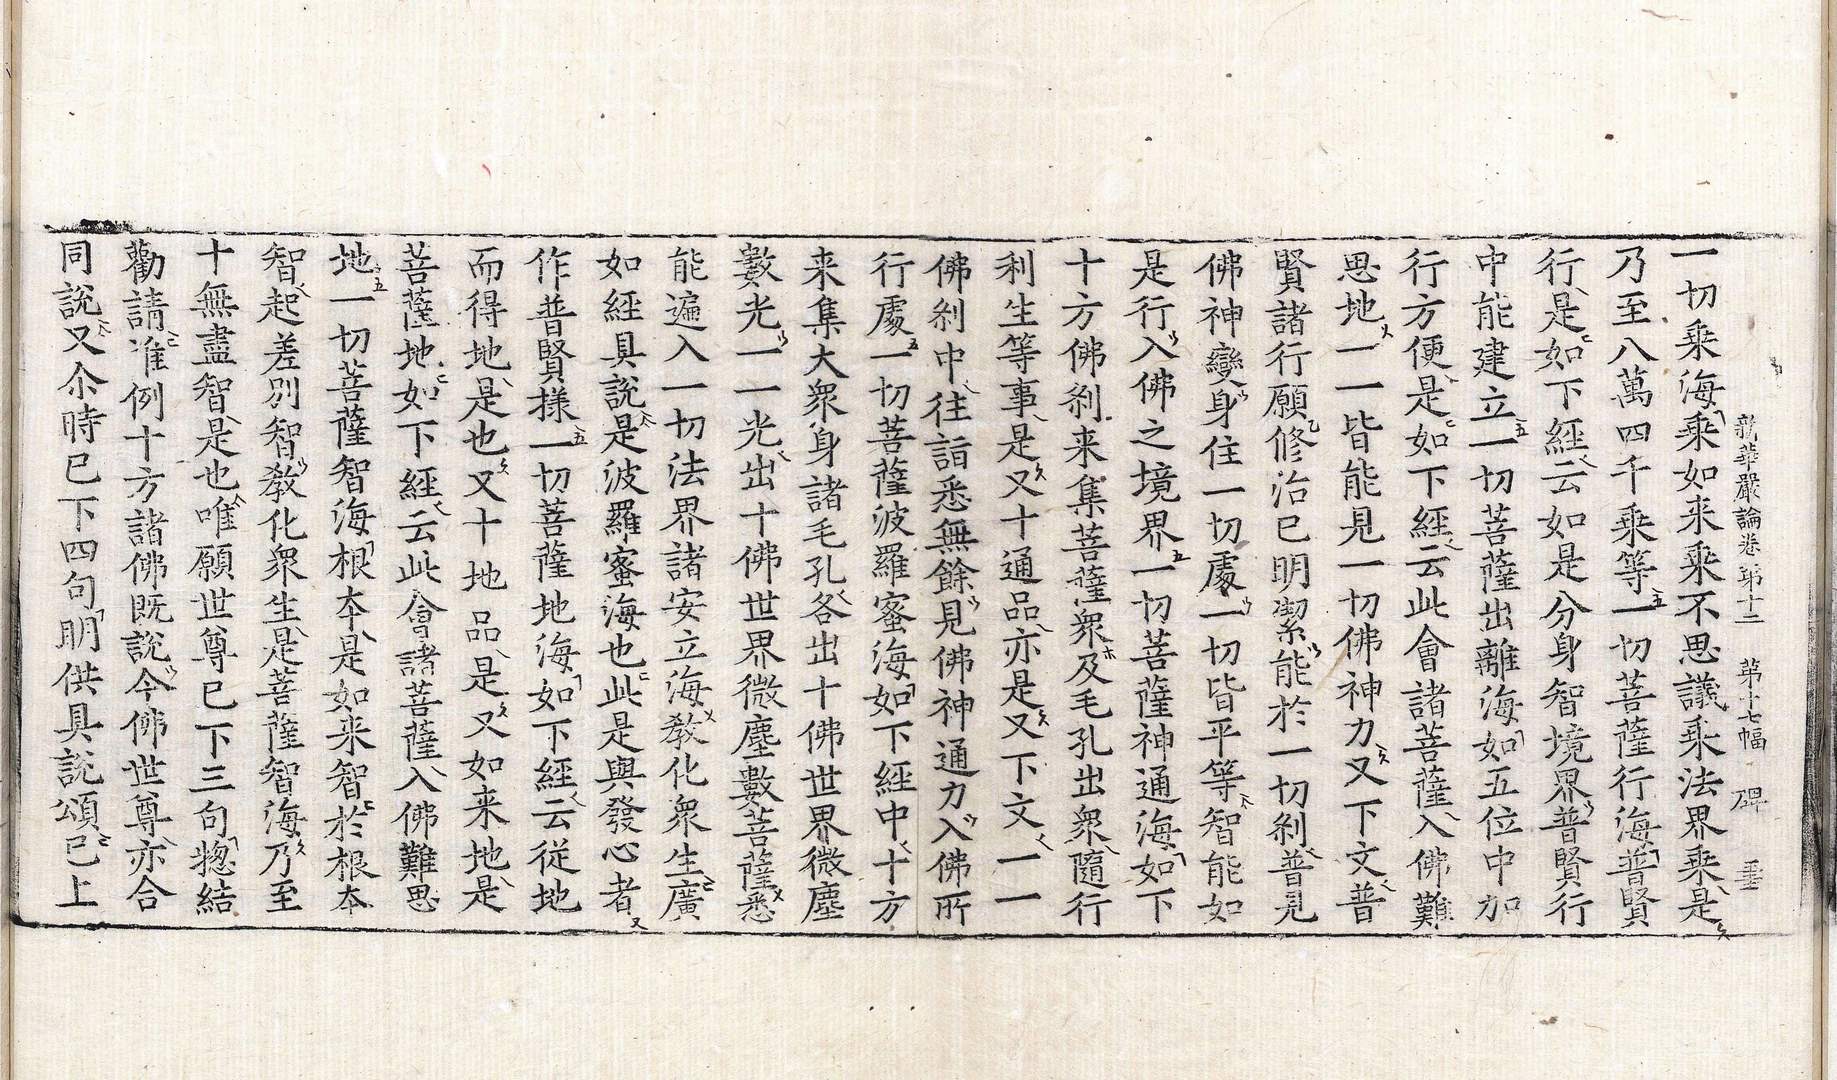 新華嚴論卷第十二 第十七幅 碑 垂
一切乘海乘如来乘不思議乘法界乘是
乃至八萬四千乘等一切菩薩行海普賢
行是如下經云如是分身智境界普賢行
中能建立一切菩薩出離海如五位中加
行方便是如下經云此會諸菩薩入佛難
思地一一皆能見一切佛神力又下文普
賢諸行願修治已明潔能於一切刹普見
佛神變身住一切處一切皆平等智能如
是行入佛之境界一切菩薩神通海如下
十方佛刹来集菩薩衆及毛孔出衆隨行
利生等事是又十通品亦是又下文一一
佛刹中往詣悉無餘見佛神通力入佛所
行處一切菩薩波羅蜜海如下經中十方
来集大衆身諸毛孔各出十佛世界微塵
數光一一光出十佛世界微塵數菩薩悉
能遍入一切法界諸安立海教化衆生廣
如經具說是波羅蜜海也此是與發心者
作普賢樣一切菩薩地海如下經云従地
而得地是也又十地品是又如来地是
菩薩地如下經云此會諸菩薩入佛難思
地一切菩薩智海根本是如来智於根本
智起差別智教化衆生是菩薩智海乃至
十無盡智是也唯願世尊已下三句揔結
勸請准例十方諸佛既說今佛世尊亦合
同說又尒時已下四句明供具說頌已上